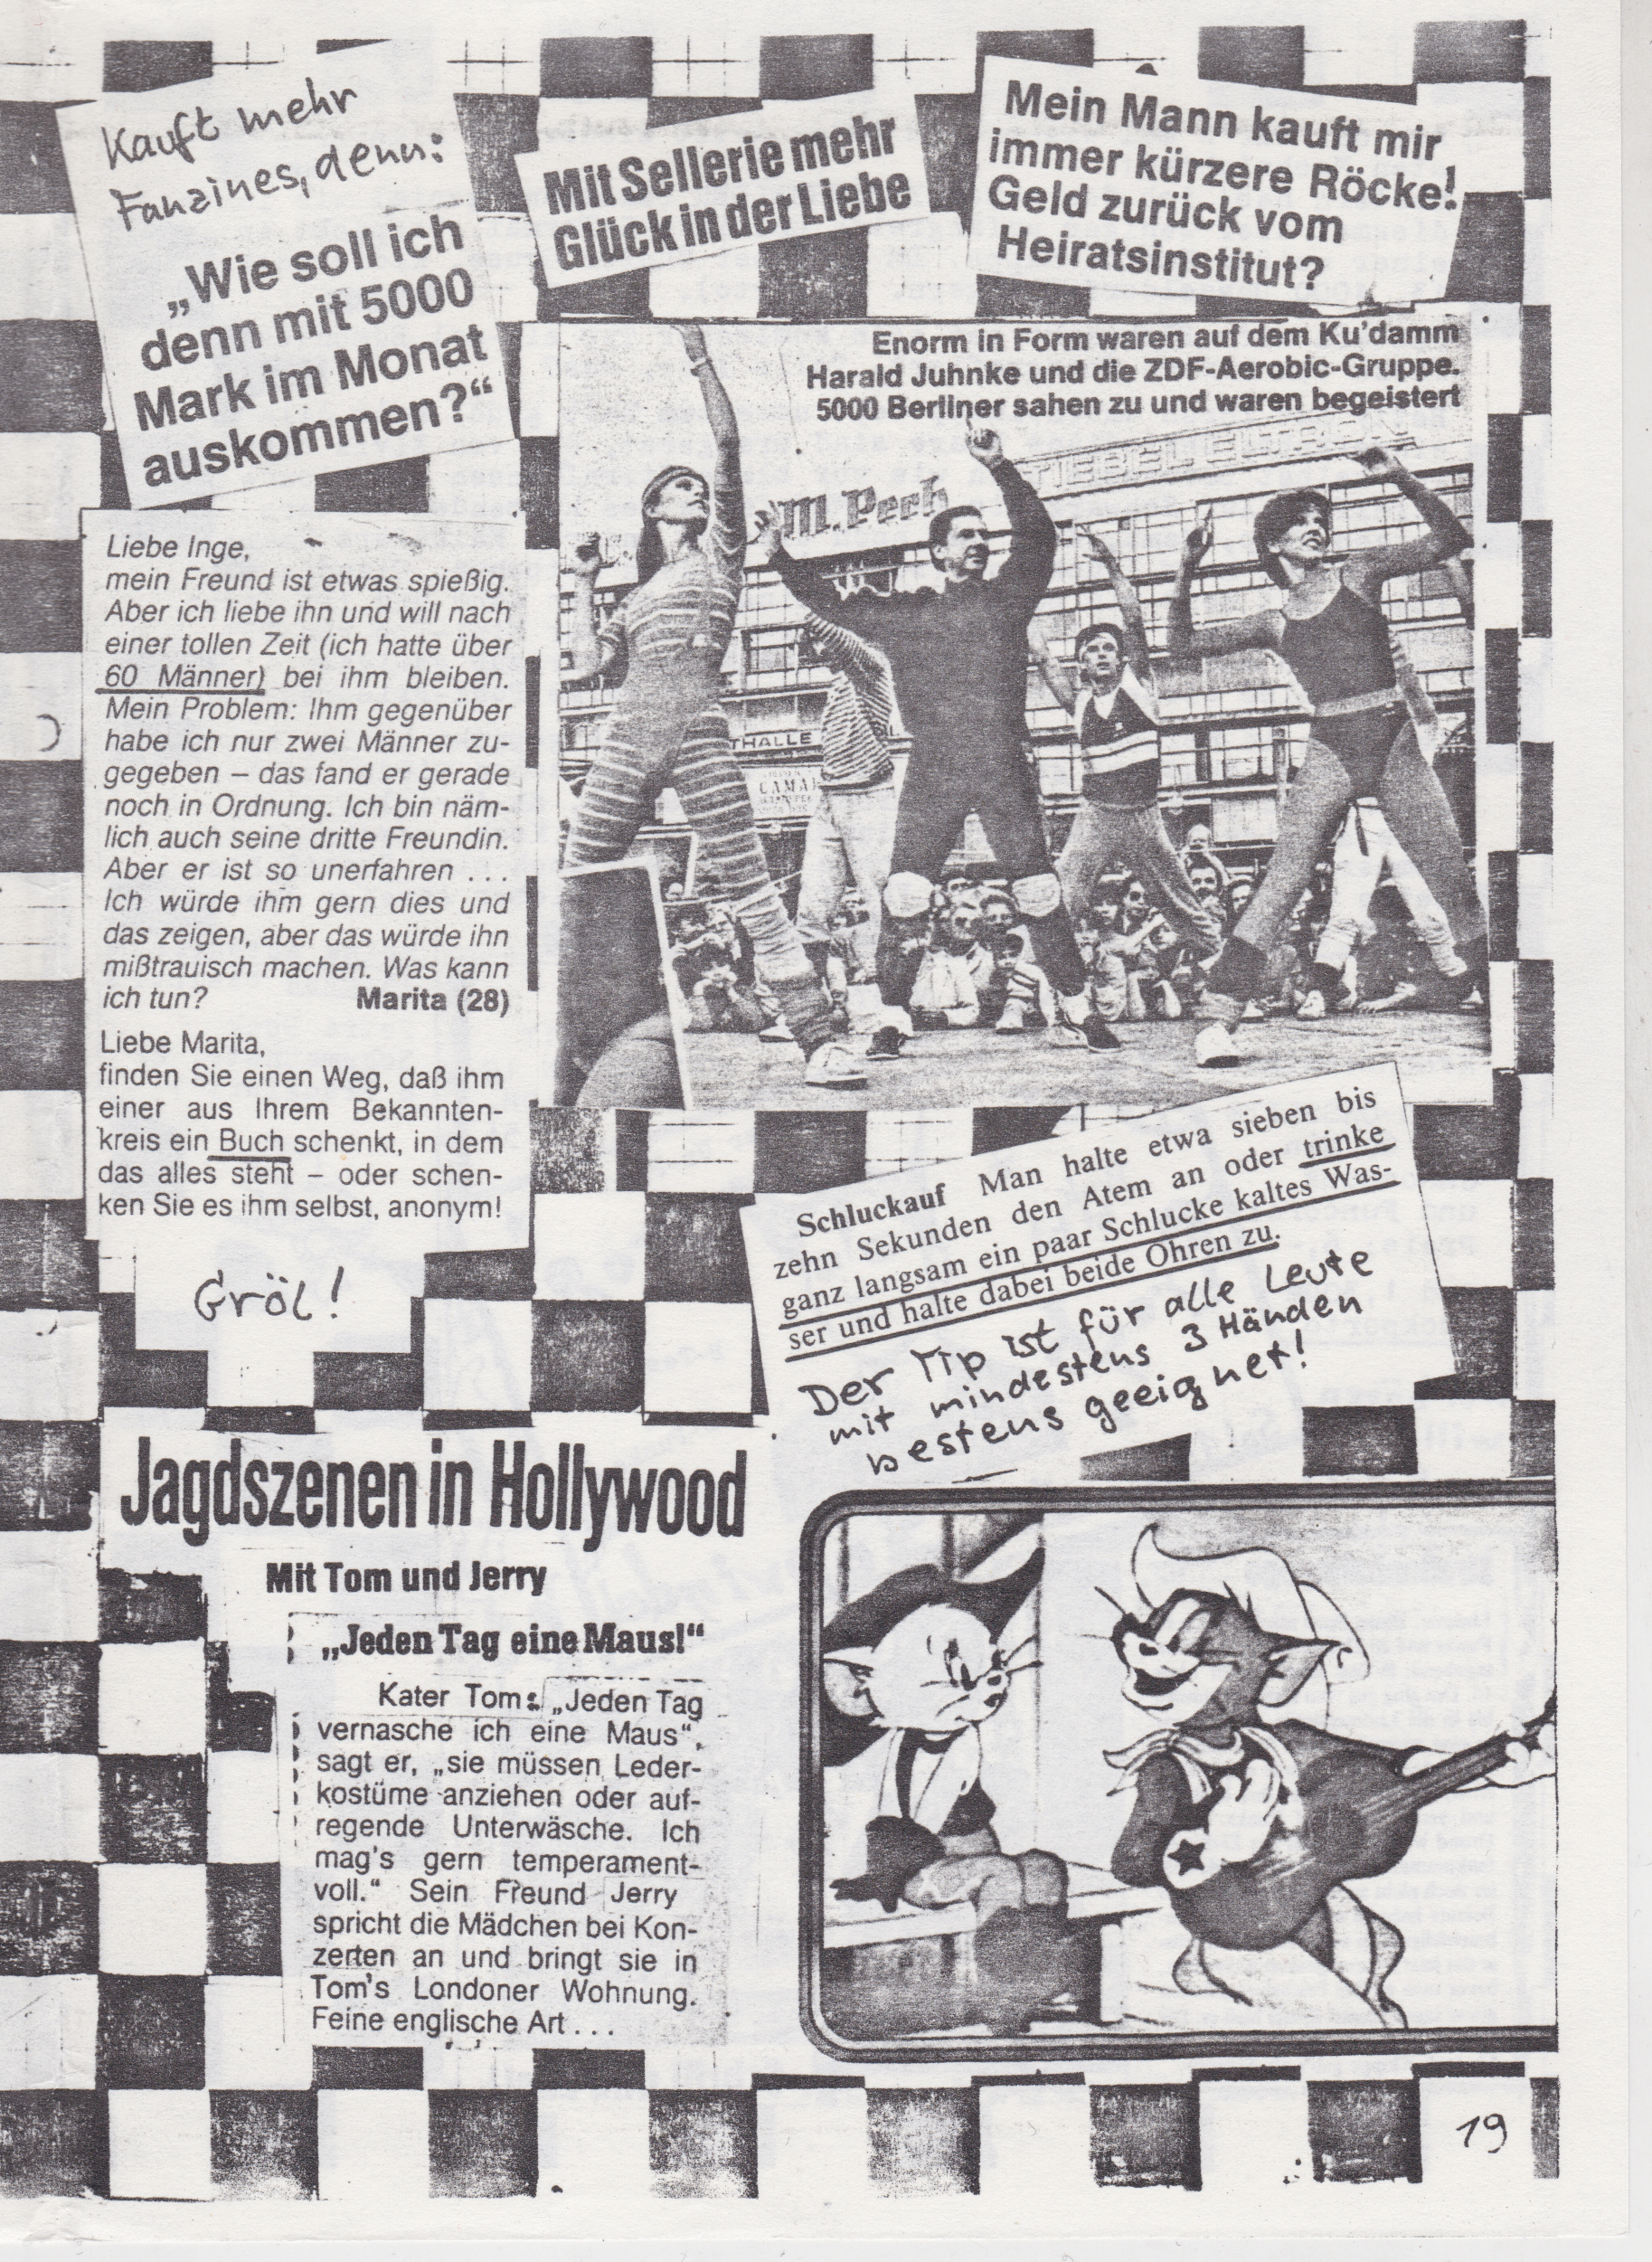 Kauft mehr
Fanzines, denn:
„Wie soll ich
denn mit 5000
Mark im Monat
auskommen?“
Mit Sellerie mehr
Glück in der Liebe
Mein Mann kauft mir
immer kürzere Röcke!
Geld zurück vom
Heiratsinstitut?
Enorm in Form waren auf dem Ku'damm
Harald Juhnke und die ZDF-Aerobic-Gruppe.
5000 Berliner sahen zu und waren begeistert
STIEBEL ELTRON
M. Pech
THALLE
CAMAR
Liebe Inge,
mein Freund ist etwas spießig.
Aber ich liebe ihn und will nach
einer tollen Zeit (ich hatte über
60 Männer) bei ihm bleiben.
Mein Problem: Ihm gegenüber
habe ich nur zwei Männer zu-
gegeben – das fand er gerade
noch in Ordnung. Ich bin näm-
lich auch seine dritte Freundin.
Aber er ist so unerfahren . . .
Ich würde ihm gern dies und
das zeigen, aber das würde ihn
mißtrauisch machen. Was kann
ich tun? Marita (28)
Liebe Marita,
finden Sie einen Weg, daß ihm
einer aus Ihrem Bekannten-
kreis ein Buch schenkt, in dem
das alles steht – oder schen-
ken Sie es ihm selbst, anonym!
Gröl!
Schluckauf Man halte etwa sieben bis
zehn Sekunden den Atem an oder trinke
ganz langsam ein paar Schlucke kaltes Was-
ser und halte dabei beide Ohren zu.
Der Tip ist für alle Leute
mit mindestens 3 Händen
bestens geeignet!
Jagdszenen in Hollywood
Mit Tom und Jerry
„Jeden Tag eine Maus!“
Kater Tom: „Jeden Tag
vernasche ich eine Maus“,
sagt er, „sie müssen Leder-
kostüme anziehen oder auf-
regende Unterwäsche. Ich
mag's gern temperament-
voll.“ Sein Freund Jerry
spricht die Mädchen bei Kon-
zerten an und bringt sie in
Tom's Londoner Wohnung.
Feine englische Art . . .
19